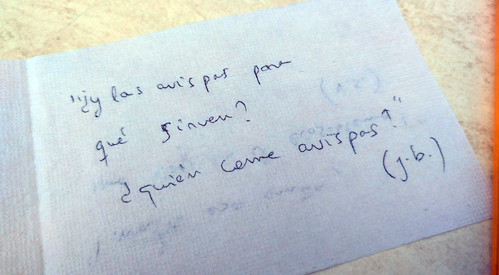 "¿y las avispas para
qué sirven?
¿quién come avispas?"
(j.b.)